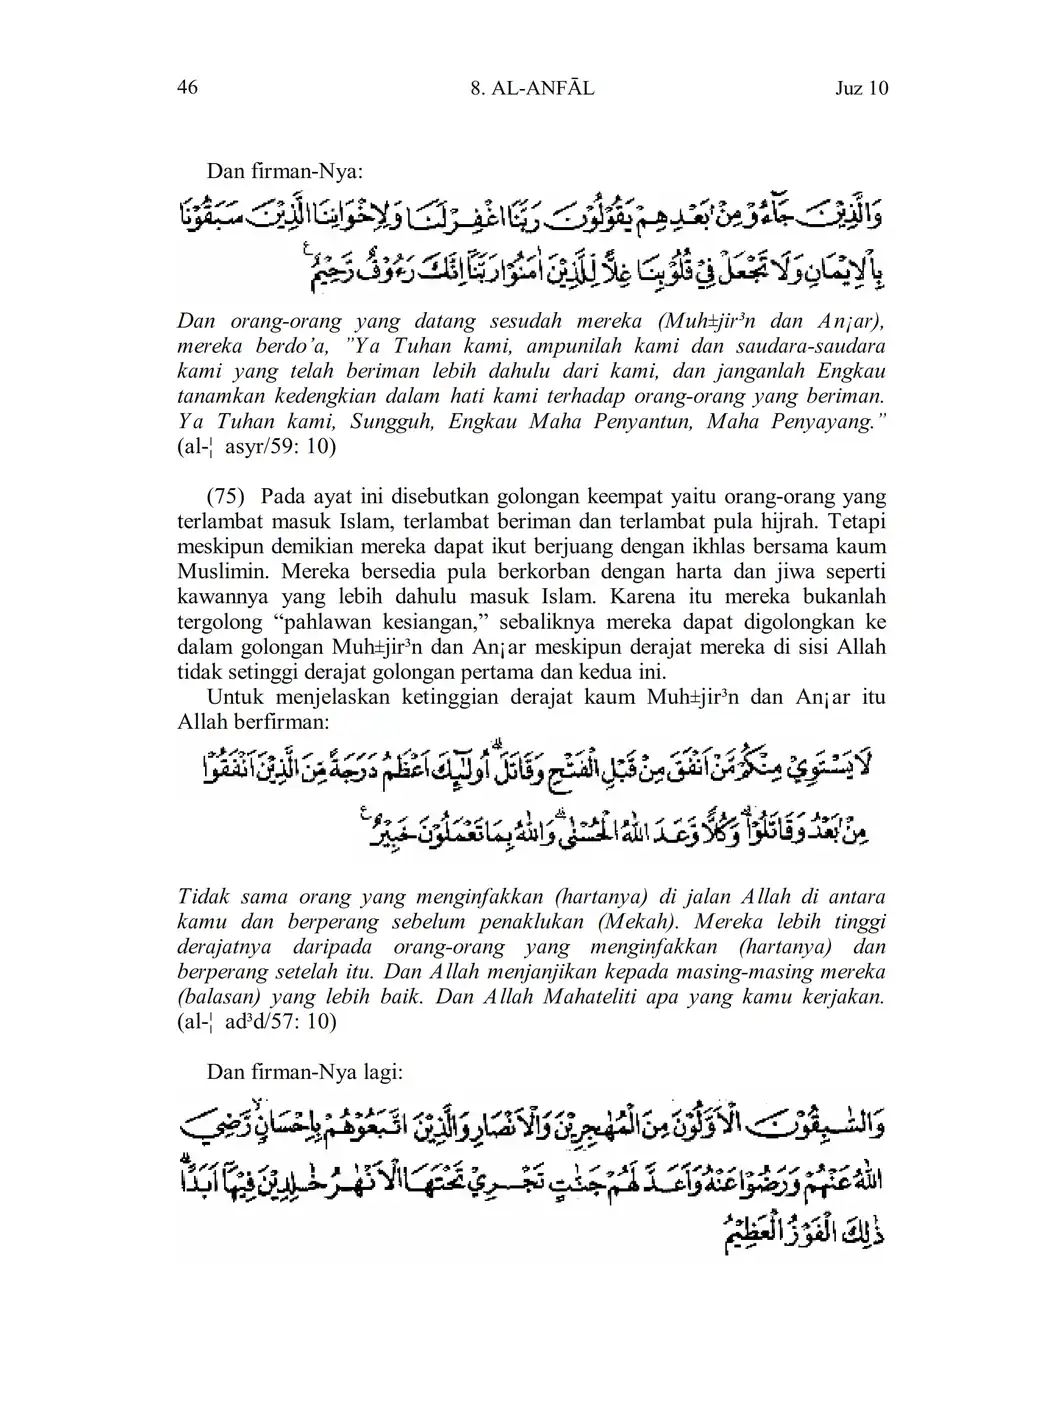 46 8. AL-ANFĀL Juz 10
Dan firman-Nya:
وَالَّذِيْنَ جَاۤءُوْ مِنْۢ بَعْدِهِمْ يَقُوْلُوْنَ رَبَّنَا اغْفِرْ لَنَا وَلِاِخْوَانِنَا الَّذِيْنَ سَبَقُوْنَا
بِالْاِيْمَانِ وَلَا تَجْعَلْ فِيْ قُلُوْبِنَا غِلًّا لِّلَّذِيْنَ اٰمَنُوْا رَبَّنَآ اِنَّكَ رَءُوْفٌ رَّحِيْمٌ ࣖ
Dan orang-orang yang datang sesudah mereka (Muh±jir³n dan An¡ar),
mereka berdo’a, ”Ya Tuhan kami, ampunilah kami dan saudara-saudara
kami yang telah beriman lebih dahulu dari kami, dan janganlah Engkau
tanamkan kedengkian dalam hati kami terhadap orang-orang yang beriman.
Ya Tuhan kami, Sungguh, Engkau Maha Penyantun, Maha Penyayang.”
(al-¦ asyr/59: 10)
(75) Pada ayat ini disebutkan golongan keempat yaitu orang-orang yang
terlambat masuk Islam, terlambat beriman dan terlambat pula hijrah. Tetapi
meskipun demikian mereka dapat ikut berjuang dengan ikhlas bersama kaum
Muslimin. Mereka bersedia pula berkorban dengan harta dan jiwa seperti
kawannya yang lebih dahulu masuk Islam. Karena itu mereka bukanlah
tergolong “pahlawan kesiangan,” sebaliknya mereka dapat digolongkan ke
dalam golongan Muh±jir³n dan An¡ar meskipun derajat mereka di sisi Allah
tidak setinggi derajat golongan pertama dan kedua ini.
Untuk menjelaskan ketinggian derajat kaum Muh±jir³n dan An¡ar itu
Allah berfirman:
لَا يَسْتَوِيْ مِنْكُمْ مَّنْ اَنْفَقَ مِنْ قَبْلِ الْفَتْحِ وَقَاتَلَۗ اُولٰۤىِٕكَ اَعْظَمُ دَرَجَةً مِّنَ الَّذِيْنَ اَنْفَقُوْا
مِنْۢ بَعْدُ وَقَاتَلُوْاۗ وَكُلًّا وَّعَدَ اللّٰهُ الْحُسْنٰىۗ وَاللّٰهُ بِمَا تَعْمَلُوْنَ خَبِيْرٌ ࣖ
Tidak sama orang yang menginfakkan (hartanya) di jalan Allah di antara
kamu dan berperang sebelum penaklukan (Mekah). Mereka lebih tinggi
derajatnya daripada orang-orang yang menginfakkan (hartanya) dan
berperang setelah itu. Dan Allah menjanjikan kepada masing-masing mereka
(balasan) yang lebih baik. Dan Allah Mahateliti apa yang kamu kerjakan.
(al-¦ ad³d/57: 10)
Dan firman-Nya lagi:
وَالسّٰبِقُوْنَ الْاَوَّلُوْنَ مِنَ الْمُهٰجِرِيْنَ وَالْاَنْصَارِ وَالَّذِيْنَ اتَّبَعُوْهُمْ بِاِحْسَانٍۙ رَّضِيَ
اللّٰهُ عَنْهُمْ وَرَضُوْا عَنْهُ وَاَعَدَّ لَهُمْ جَنّٰتٍ تَجْرِيْ تَحْتَهَا الْاَنْهٰرُ خٰلِدِيْنَ فِيْهَآ اَبَدًاۗ
ذٰلِكَ الْفَوْزُ الْعَظِيْمُ